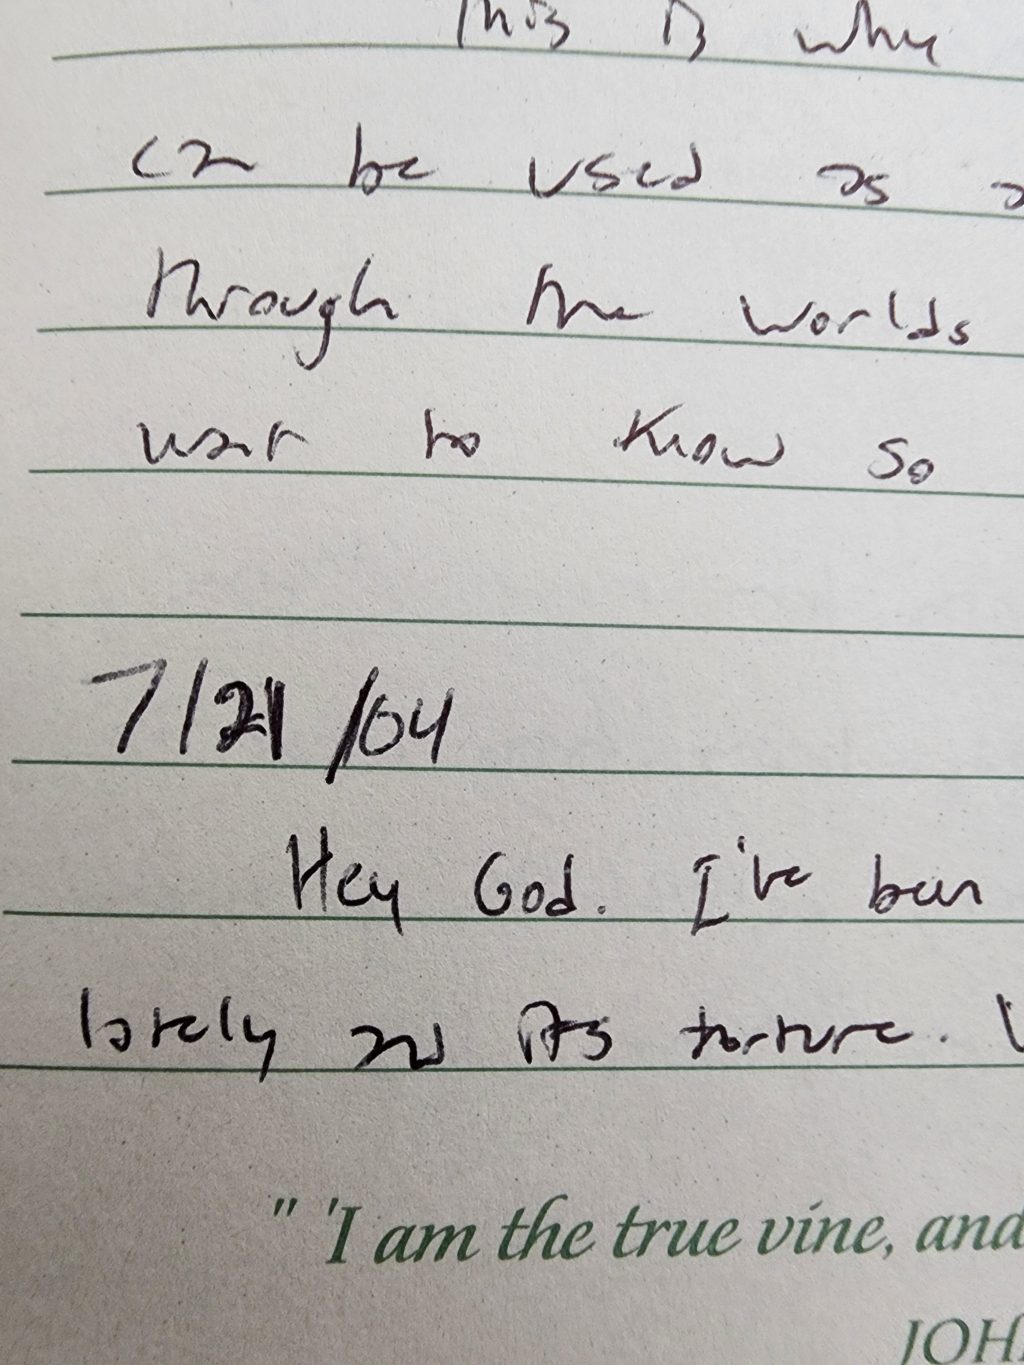 This is why
can be used as a
through the worlds
want to know so
7/21/04
Hey God. I've been
lately and its torture.
" 'I am the true vine, and
JOH